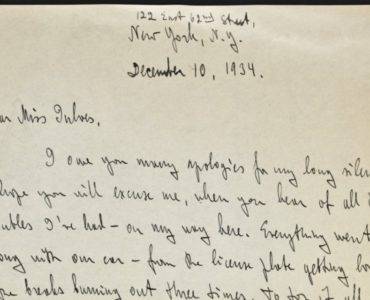 122 East 62nd Street,
New York, N.Y.
December 10, 1934.
ar Miss
I owe you many apologies for my long silen
hope you will excuse me, when you hear of all
ubles I've had – on my way here. Everything went
ong with our car – from the license plate getting
breaks burning out three times. To top it all